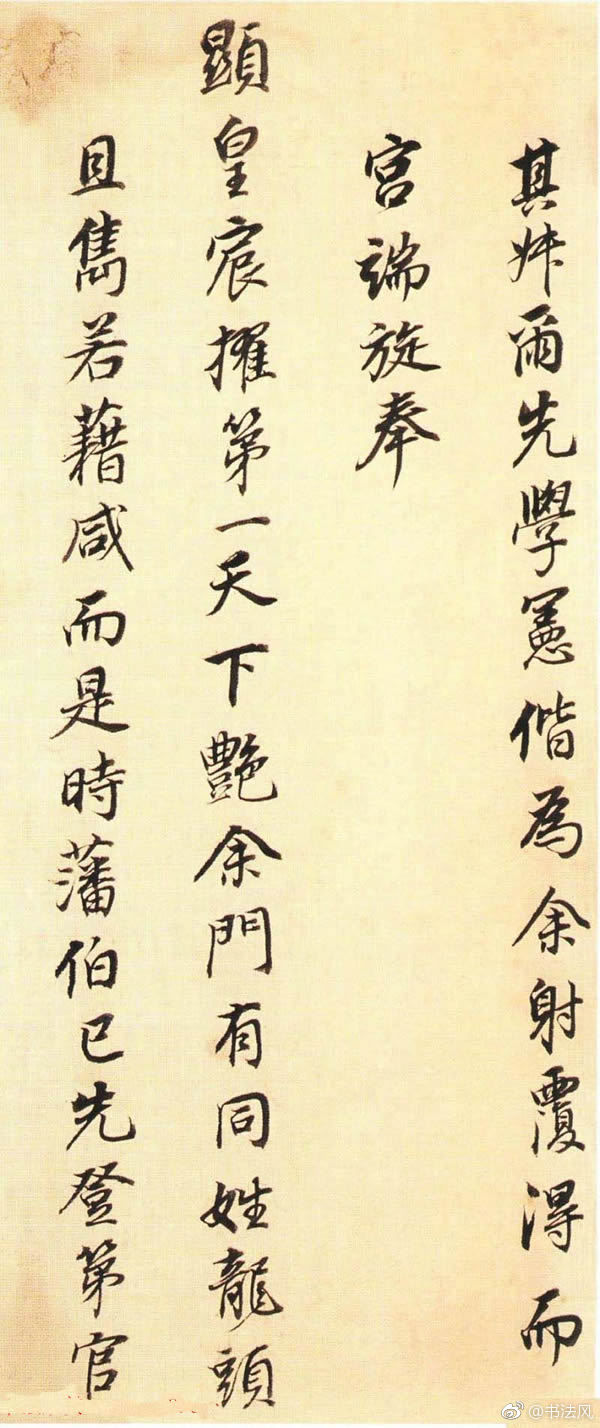 其叔爾先學憲偕為余射覆得而
宮端旋奉
顯皇宸擢第一天下艷余門有同姓龍頭
且雋若藉咸而是時藩伯已先登第官
@书法风